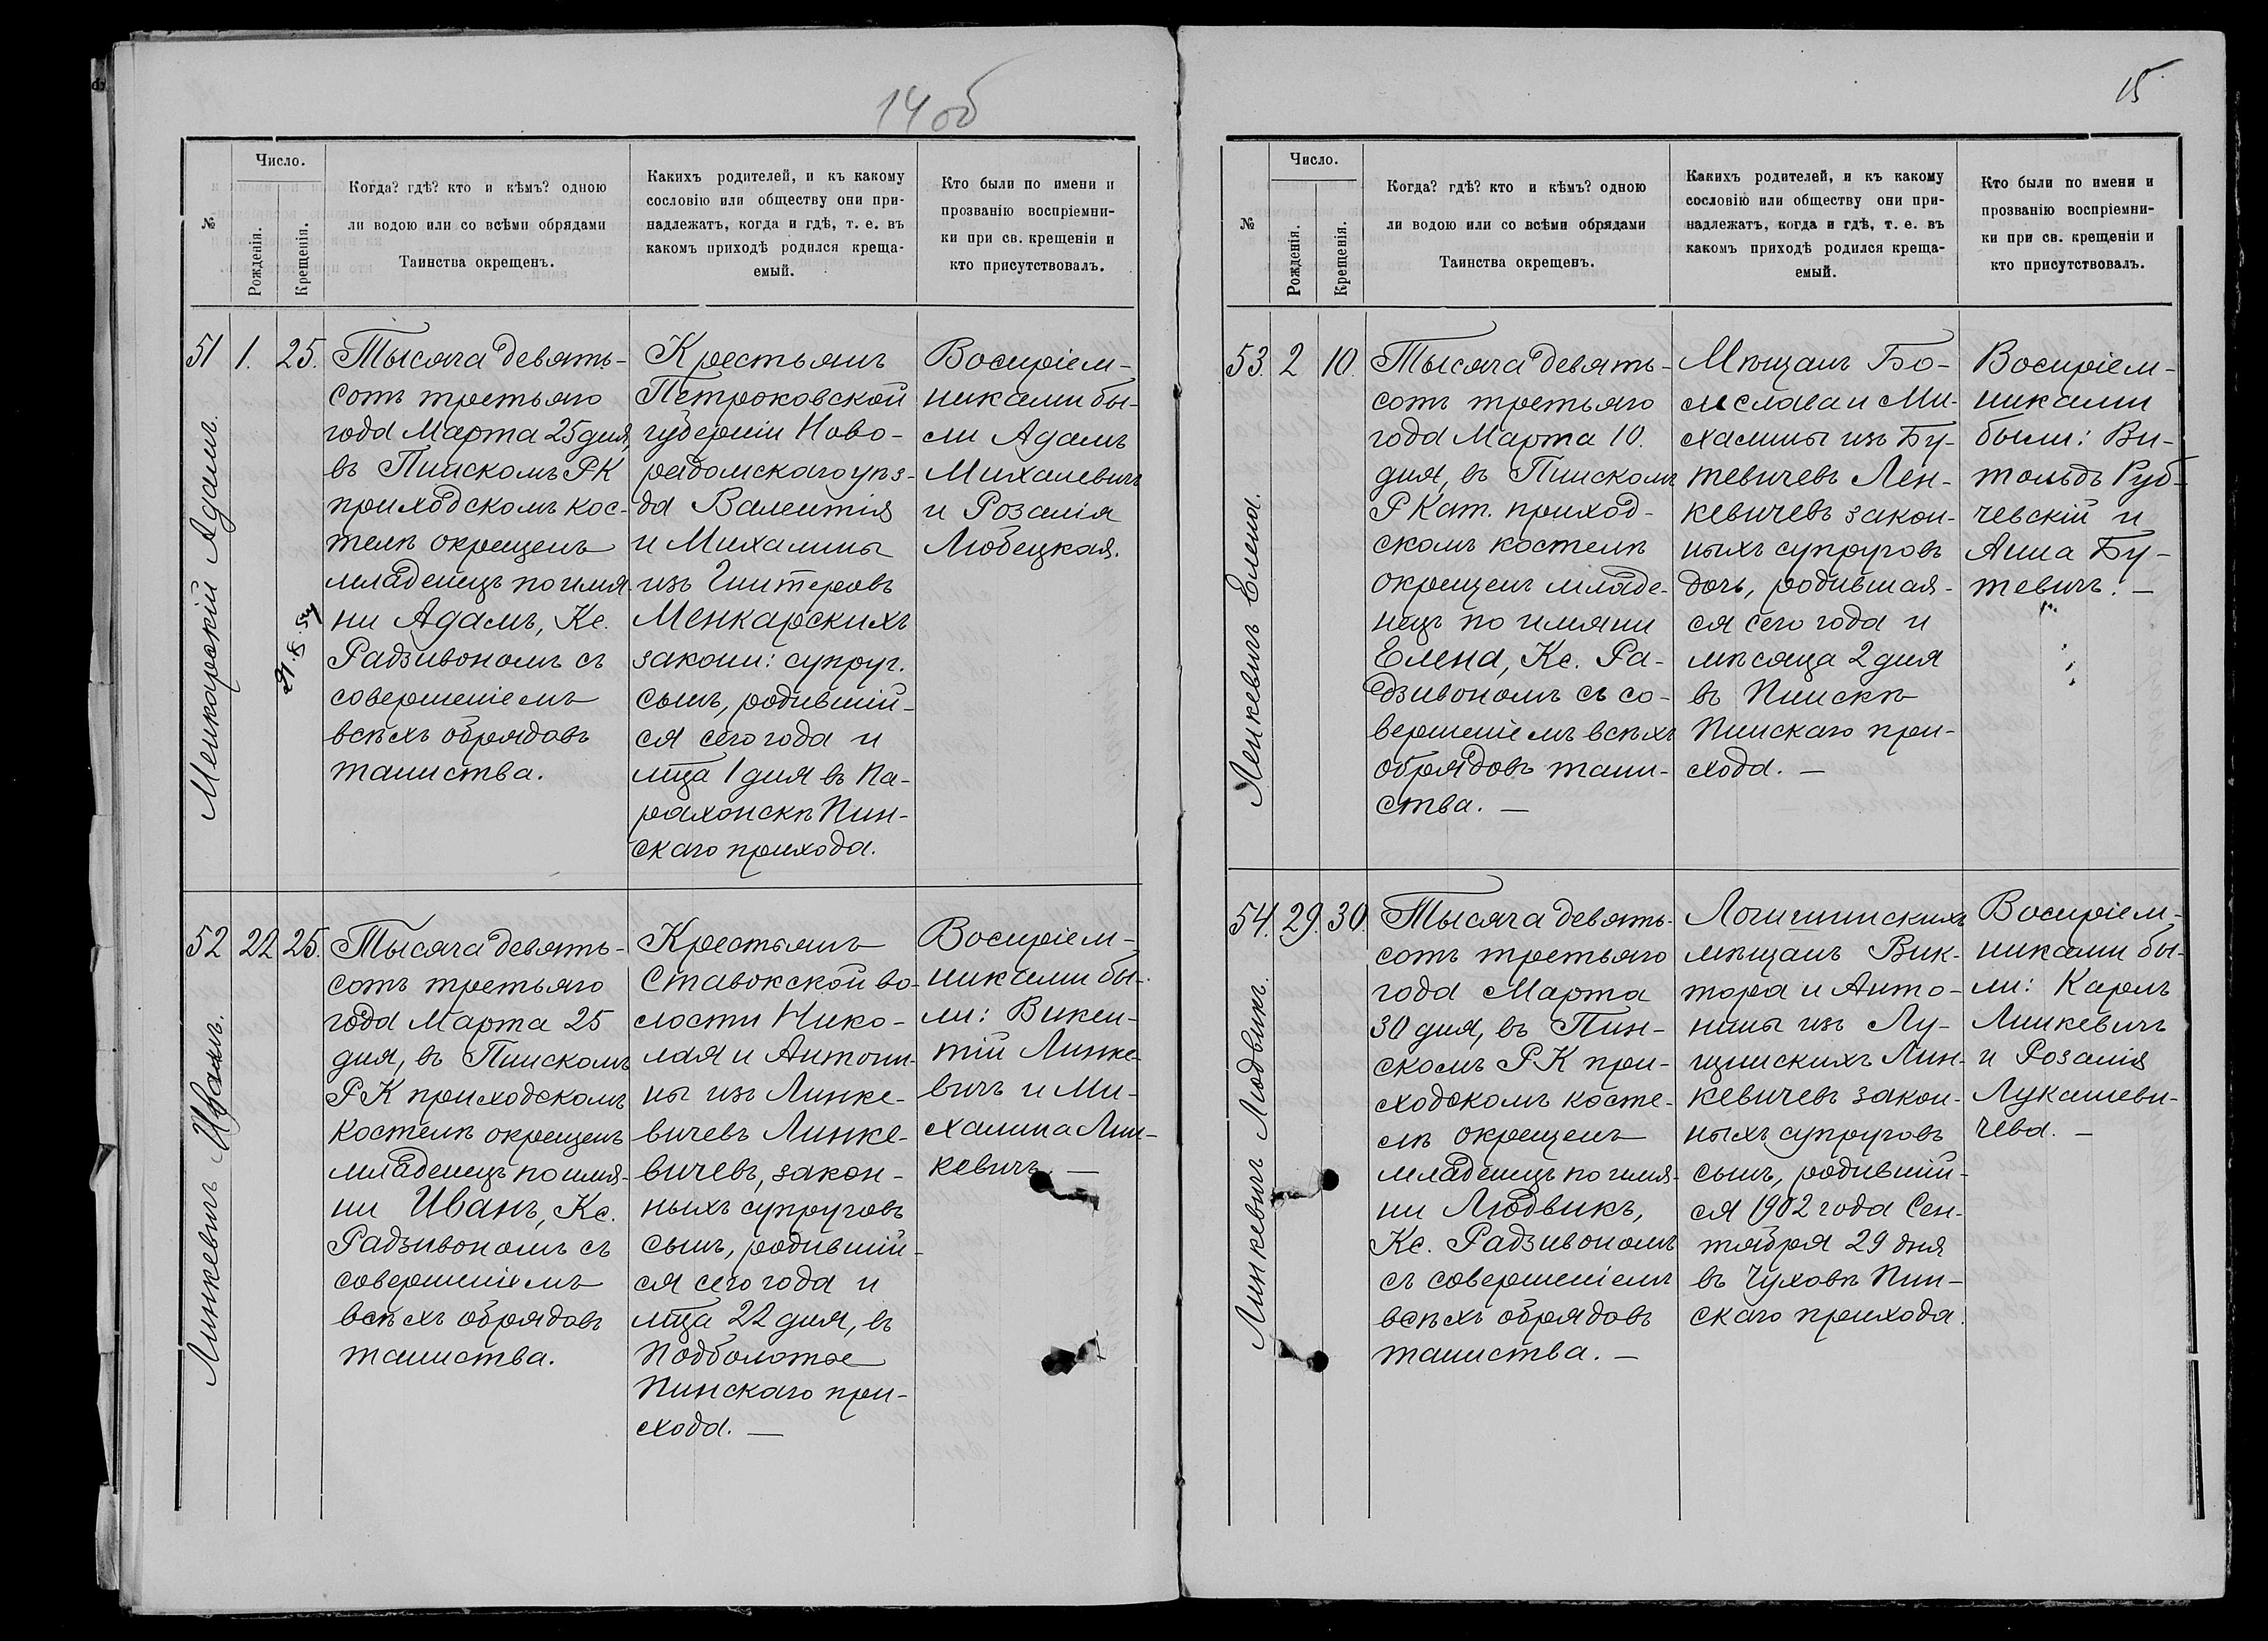 14 об
№
Число.
Рожденія.
Крещенія.
Когда? гдѣ? кто и кѣмъ? одною
ли водою или со всѣми обрядами
Таинства окрещенъ.
Какихъ родителей, и къ какому
сословію или обществу они при-
надлежатъ, когда и гдѣ, т. е. въ
какомъ приходѣ родился креща-
емый.
Кто были по имени и
прозванію воспріемни-
ки при св. крещеніи и
кто присутствовалъ.
51
1.
25.
Менкарскій Адамъ.
Тысяча девять-
сотъ третьяго
года Марта 25 дня,
въ Пинскомъ РК
приходскомъ кос-
телѣ окрещенъ
младенецъ по имя-
ни Адамъ, Кс.
Радзивономъ съ
совершеніемъ
всѣхъ обрядовъ
таинства.
Крестьянъ
Петроковской
губерніи Ново-
радомскаго уѣз-
да Валентія
и Михалины
изъ Гинтеровъ
Менкарскихъ
законн: супруг.
сынъ, родившій-
ся сего года и
мца 1 дня въ Па-
рахонскѣ Пин-
скаго прихода.
Воспріем-
никами бы-
ли Адамъ
Михалевичъ
и Розалія
Любецкая.
52
22
25.
Линкевичъ Иванъ.
Тысяча девять-
сотъ третьяго
года Марта 25
дня, въ Пинскомъ
РК приходскомъ
костелѣ окрещенъ
младенецъ по имя-
ни Иванъ, Кс.
Радзивономъ съ
совершеніемъ
всѣхъ обрядовъ
таинства.
Крестьянъ
Ставокской во-
лости Нико-
лая и Антони-
ны изъ Линке-
вичевъ Линке-
вичевъ, закон-
ныхъ супруговъ
сынъ, родившій-
ся сего года и
мца 22 дня, въ
Подболотье
Пинскаго при-
хода. —
Воспріем-
никами бы-
ли: Викен-
тій Линке-
вичъ и Ми-
халина Лин-
кевичъ. —
15
№
Число.
Рожденія.
Крещенія.
Когда? гдѣ? кто и кѣмъ? одною
ли водою или со всѣми обрядами
Таинства окрещенъ.
Какихъ родителей, и къ какому
сословію или обществу они при-
надлежатъ, когда и гдѣ, т. е. въ
какомъ приходѣ родился креща-
емый.
Кто были по имени и
прозванію воспріемни-
ки при св. крещеніи и
кто присутствовалъ.
53.
2
10.
Ленкевичъ Елена.
Тысяча девять-
сотъ третьяго
года Марта 10.
дня, въ Пинскомъ
РКат. приход-
скомъ костелѣ
окрещенъ младе-
нецъ по имяни
Елена, Кс. Ра-
дзивономъ съ со-
вершеніемъ всѣхъ
обрядовъ таин-
ства. —
Мѣщанъ Бо-
леслава и Ми-
халины изъ Бу-
тевичевъ Лен-
кевичевъ закон-
ныхъ супруговъ
дочь, родившая-
ся сего года и
мѣсяца 2 дня
въ Пинскѣ
Пинскаго при-
хода. —
Воспріем-
никами
были: Ви-
тольдъ Руб-
чевскій и
Анна Бу-
тевичъ. —
54.
29.
30.
Линкевичъ Людвикъ.
Тысяча девять-
сотъ третьяго
года Марта
30 дня, въ Пин-
скомъ РК при-
ходскомъ косте-
лѣ окрещенъ
младенецъ по имя-
ни Людвикъ,
Кс. Радзивономъ
съ совершеніемъ
всѣхъ обрядовъ
таинства. —
Логишинскихъ
мѣщанъ Вик-
тора и Анто-
нины изъ Лу-
щинскихъ Лин-
кевичевъ закон-
ныхъ супруговъ
сынъ, родившій-
ся 1902 года Сен-
тября 29 дня
въ Чуховѣ Пин-
скаго прихода.
Воспріем-
никами бы-
ли: Карлъ
Линкевичъ
и Розалія
Лукашеви-
чева. —